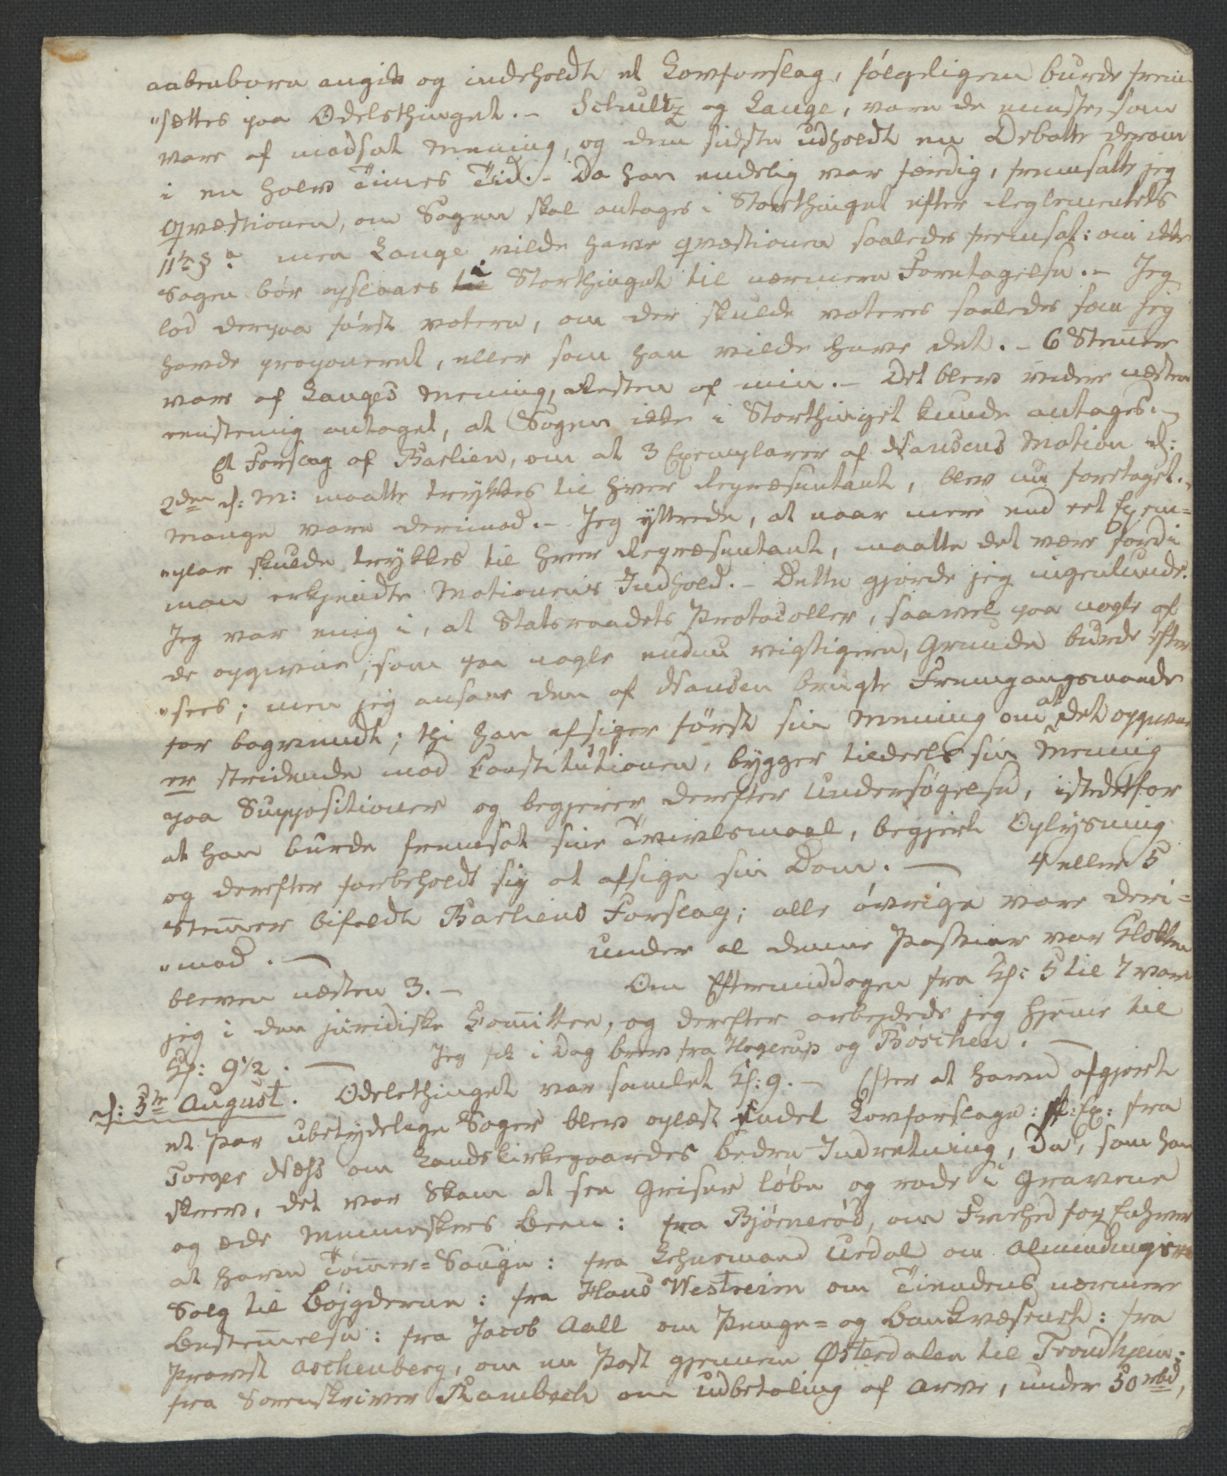 aabenbara angik og indeholdt et Lovforslag, følgeligen burde frem-
"sættes paa Odelsthinget. - Schultz og Lange, vare de eneste, som
vare af modsat Mening, og den sidste udholdt en Debatte derom
i en halv Times Tid. - Da han endelig var færdig, fremsatte jeg
Qvæstionen, om Sagen skal antages i Storthinget efter Reglementets
11te § a men Lange vilde have qvæstionen saaledes fremsat: om ikke
Sagen bør opsaaes i Storthinget til nærmere Foretagelse. - Jeg
lod derpaa først votere, om der skulde voteres saaledes som jeg
havde proponeret, eller som han vilde have det. - 6 Stemer
var af Langes Mening, Resten af min. - Det blev videre næsten
eenstemig antaget, at Sagen ikke i Storthinget kunde antages. -
Et Forslag af Barlien, om at 3 Exemplarer af Nansens Motion d:
2den d: M: maatte trykkes til hver Repræsentant, blev nu foretaget. -
Mange vare derimod. - Jeg yttrede, at naar mere end eet Exem=
"plar skulde trykkes til hver Repræsentant, maatte det være fordi
man erkjendte Motionens Indhold. - Dette gjorde jeg ingenlunde.
Jeg var enig i, at Statsraadets Protocoller, saavel paa nogle af
de opgivne, som paa nogle endnu vigtigere, Grunde burde efter
"sees; men jeg ansaae den af Nansen brugte Fremgangsmaade
for bagvendt; thi han afsiger først sin Mening om at det opgivne
er stridende mod Constitutionen, bygger tildeels sin Mening
paa Suppositioner og begjerer derefter Undersøgelse, istedetfor
at han burde fremsat sine Tvivlsmaal, begjert Oplysning
og derefter forbeholdt sig at afsige sin Dom. - 4 eller 5
Stemer bifaldt Barliens Forslag; alle øvrige vare deri=
"mod. - Under al denne Passiar var Klokken
bleven næsten 3. - Om Eftermiddagen fra Kl: 5 til 7 var
jeg i den juridiske Comitteen, og derefter arbejdede jeg hjeme til
Kl: 9 1/2. - Jeg fik i Dag brev fra Hagerup og Büschen. -
d: 5te August. Odelsthinget var samlet Kl: 9. - Efter at have afgjort
et Par ubetydelige Sager blev oplæst endel Lovforslage: f: Ex: fra
Torger Næss om Landskirkegaardes bedre Indretning, Da, som han
skrev, det var Skam at see Griser løbe og rode i Gravene
og æde Menneskers Been: fra Bjørnerød, om Frihed for Enhver
at have Tømer=Sauge: fra Lehnsmand Urdal om Almindingers
Salg til Bøjgderne: fra Hans Westreim om Tiendens nærmere
Bestemelse: fra Jacob Aall om Penge= og Bankvæsenet: fra
Provst Aschenberg, om en Post gjennem Østerdalen til Trondhjem:
fra Sorenskriver Rambech om Udbetaling af Arve, under 50 rbd,